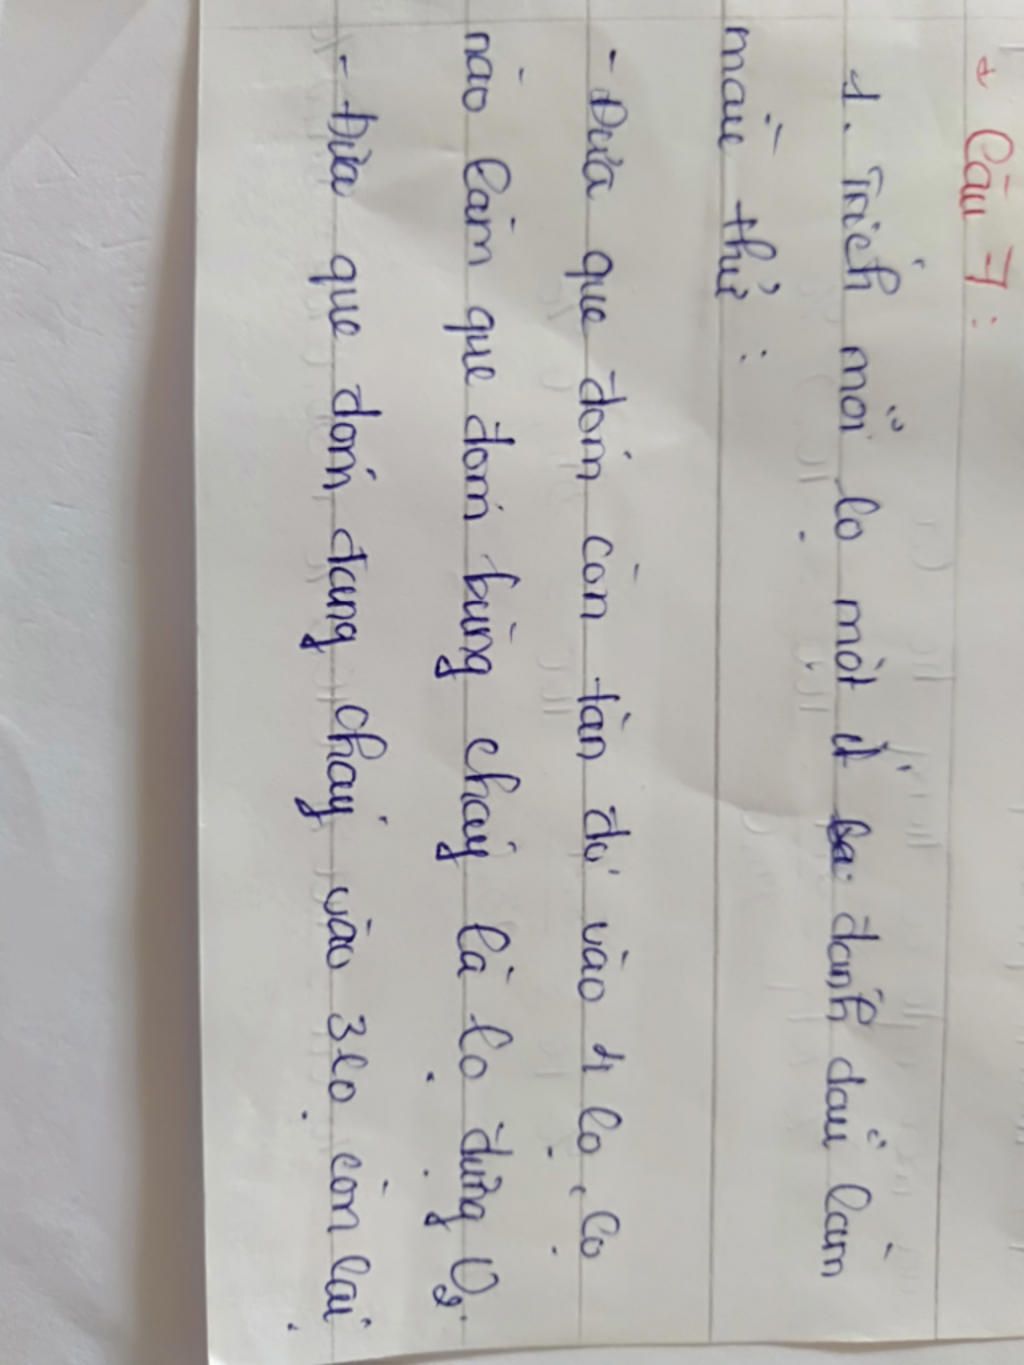 + Câu 7:
1. Trích mỗi lọ một ít đánh dấu làm
mẫu thử:
- Đưa que đóm còn tàn đỏ vào 4 lọ, lọ
nào làm que đóm bùng cháy là lọ đựng O₂.
- Đưa que đóm đang cháy vào 3 lọ còn lại